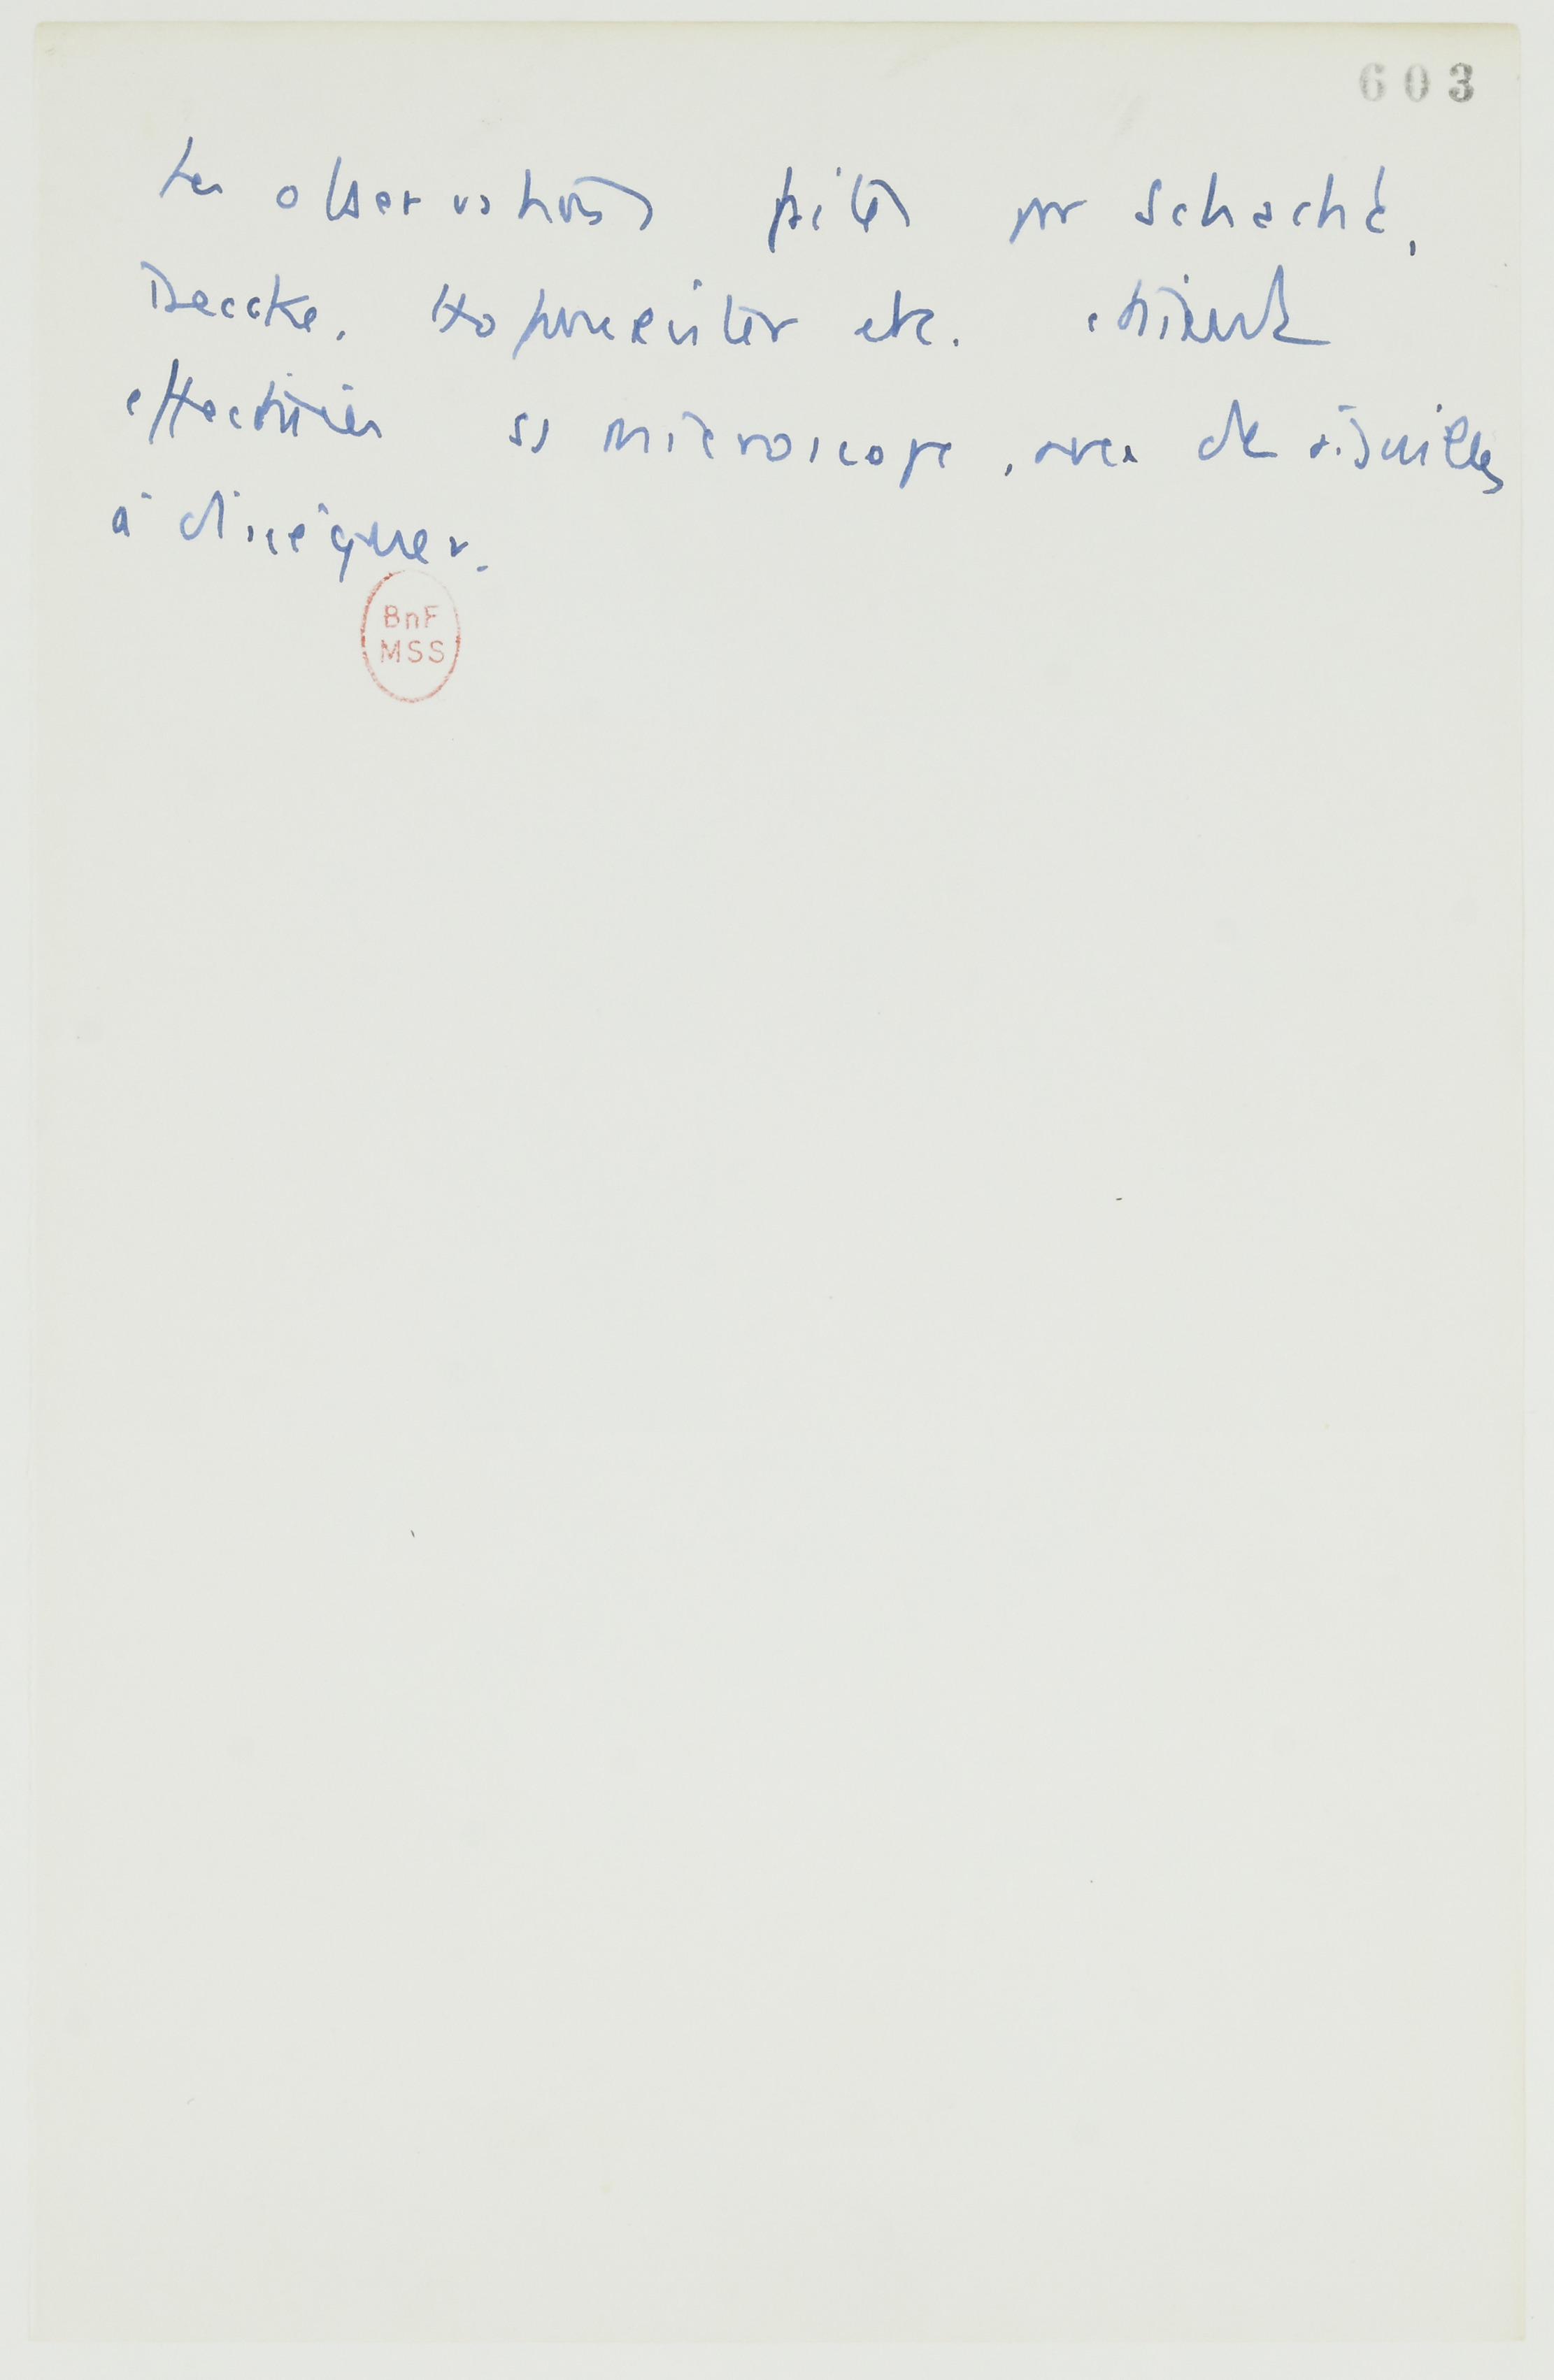 603
Les observations faites par Schacht,
Deecke, Hofmeister etc. étaient
effectuées ss microscope, avec des aiguilles
à disséquer.
BnF
MSS